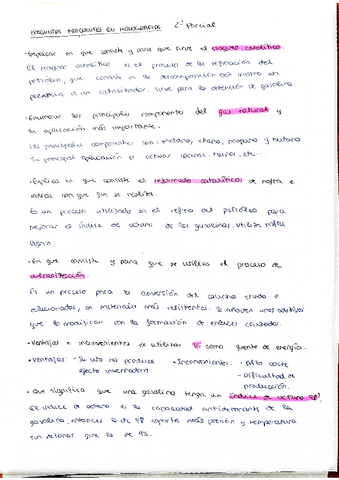 PREGUNTAS FRECUENTES EN MONOGRAFIAS 2º Parcial
-Explicar en que consiste y para que sirve el craqueo catalítico.
El craqueo catalítico es el proceso de la refinación del
petróleo, que consiste en la descomposición del mismo en
presencia de un catalizador. Sirve para la obtención de gasolina.
-Enumerar los principales componentes del gas natural y
su aplicación más importante.
Los principales componentes son: metano, etano, propano y butano
Su principal aplicación es activar cocinas, hornos, etc...
-Explica en que consiste el reformado catalítico de nafta e
indica con que fin se realiza.
Es un proceso utilizado en el refino del petróleo para
mejorar el índice de octano de las gasolinas. Utiliza nafta
ligera.
-En que consiste y para que se utiliza el proceso de
vulcanización.
Es un proceso para la conversión del caucho crudo o
relacionados, en materiales más resistentes. Se añaden unos aditivos
que lo modifican con la formación de enlaces cruzados.
•Ventajas e inconvenientes de utilizar como fuente de energía.
•Ventajas: - Su uso no produce •Inconvenientes: - Alto coste
efecto invernadero - Dificultad de
producción.
•Que significa que una gasolina tenga un índice de octano 98?
El índice de octano es la capacidad antidetonante de la
gasolina, entonces la de 98 soporta más presión y temperatura
sin detonar que la de 95.